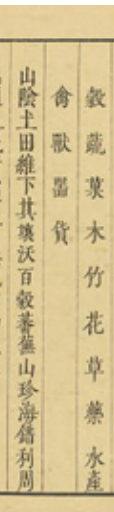 穀蔬菓木竹花草藥水產
禽獸器貨
山陰土田維下其壤沃百穀蕃蕪山珍海錯利周